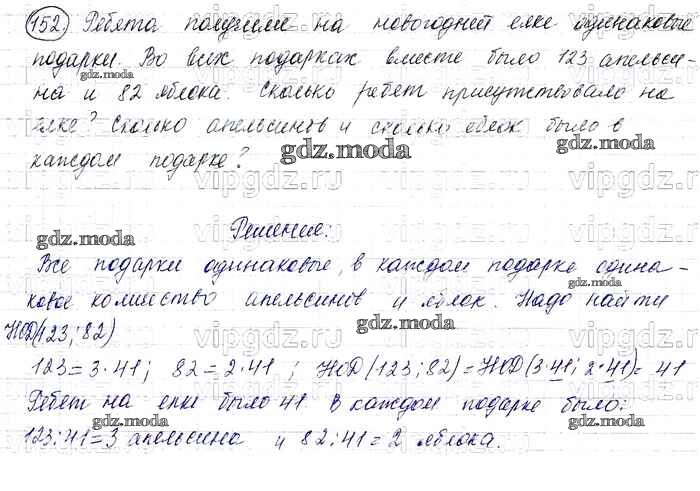 152. Ребята получили на новогодней елке одинаковые
подарки. Во всех подарках вместе было 123 апельси-
gdz.moda
на и 82 яблока. Сколько ребят присутствовало на
gdz.moda
елке? Сколько апельсинов и сколько яблок было в
gdz.moda
gdz.moda
каждом подарке?
vipgdz.ru vipgdz.ru vipgdz.ru
Решение:
gdz.moda
Все подарки одинаковые, в каждом подарке одина-
gdz.moda
ковое количество апельсинов и яблок. Надо найти
gdz.moda
НОД(123; 82)
gdz.moda
123 = 3·41; 82 = 2·41; НОД(123; 82) = НОД(3·41; 2·41) = 41
Ребят на елке было 41 В каждом подарке было:
gdz.moda
gdz.moda
123:41=3 апельсина и 82:41=2 яблока.